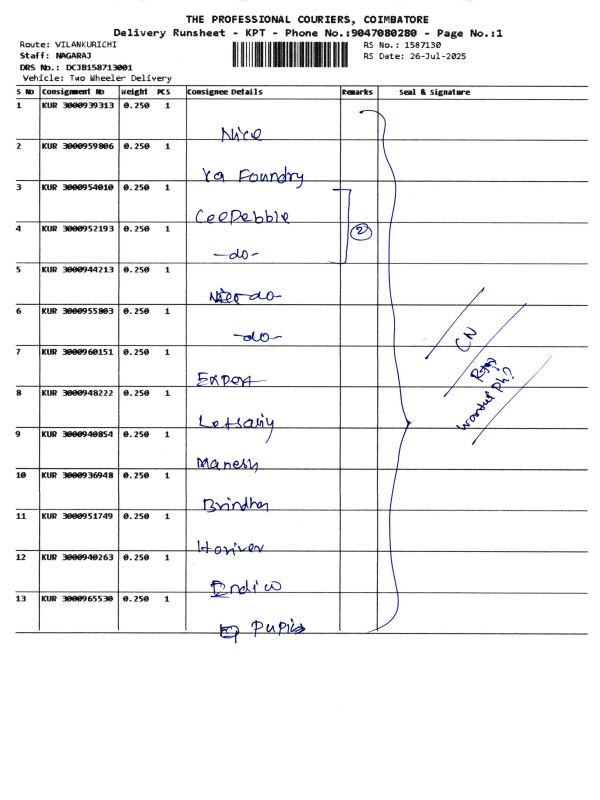 THE PROFESSIONAL COURIERS, COIMBATORE
Delivery Runsheet - KPT - Phone No.:9047080280 - Page No.:1
Route: VILANKURICHI
Staff: NAGARAJ
DRS No.: DCJB158713001
Vehicle: Two Wheeler Delivery
RS No.: 1587130
RS Date: 26-Jul-2025
S No Consignment No Weight PCS Consignee Details Remarks Seal & Signature
1 KUR 3000939313 0.250 1
Nice
2 KUR 3000959806 0.250 1
Foundry
3 KUR 3000954010 0.250 1
CeeDebbie
4 KUR 3000952193 0.250 1
-do-
2
5 KUR 3000944213 0.250 1
-do-
6 KUR 3000955803 0.250 1
-do-
7 KUR 3000960151 0.250 1
Expert
8 KUR 3000948222 0.250 1
9 KUR 3000940854 0.250 1
Manesh
10 KUR 3000936948 0.250 1
Brindha
11 KUR 3000951749 0.250 1
12 KUR 3000940263 0.250 1
13 KUR 3000965530 0.250 1
CN
Ph?